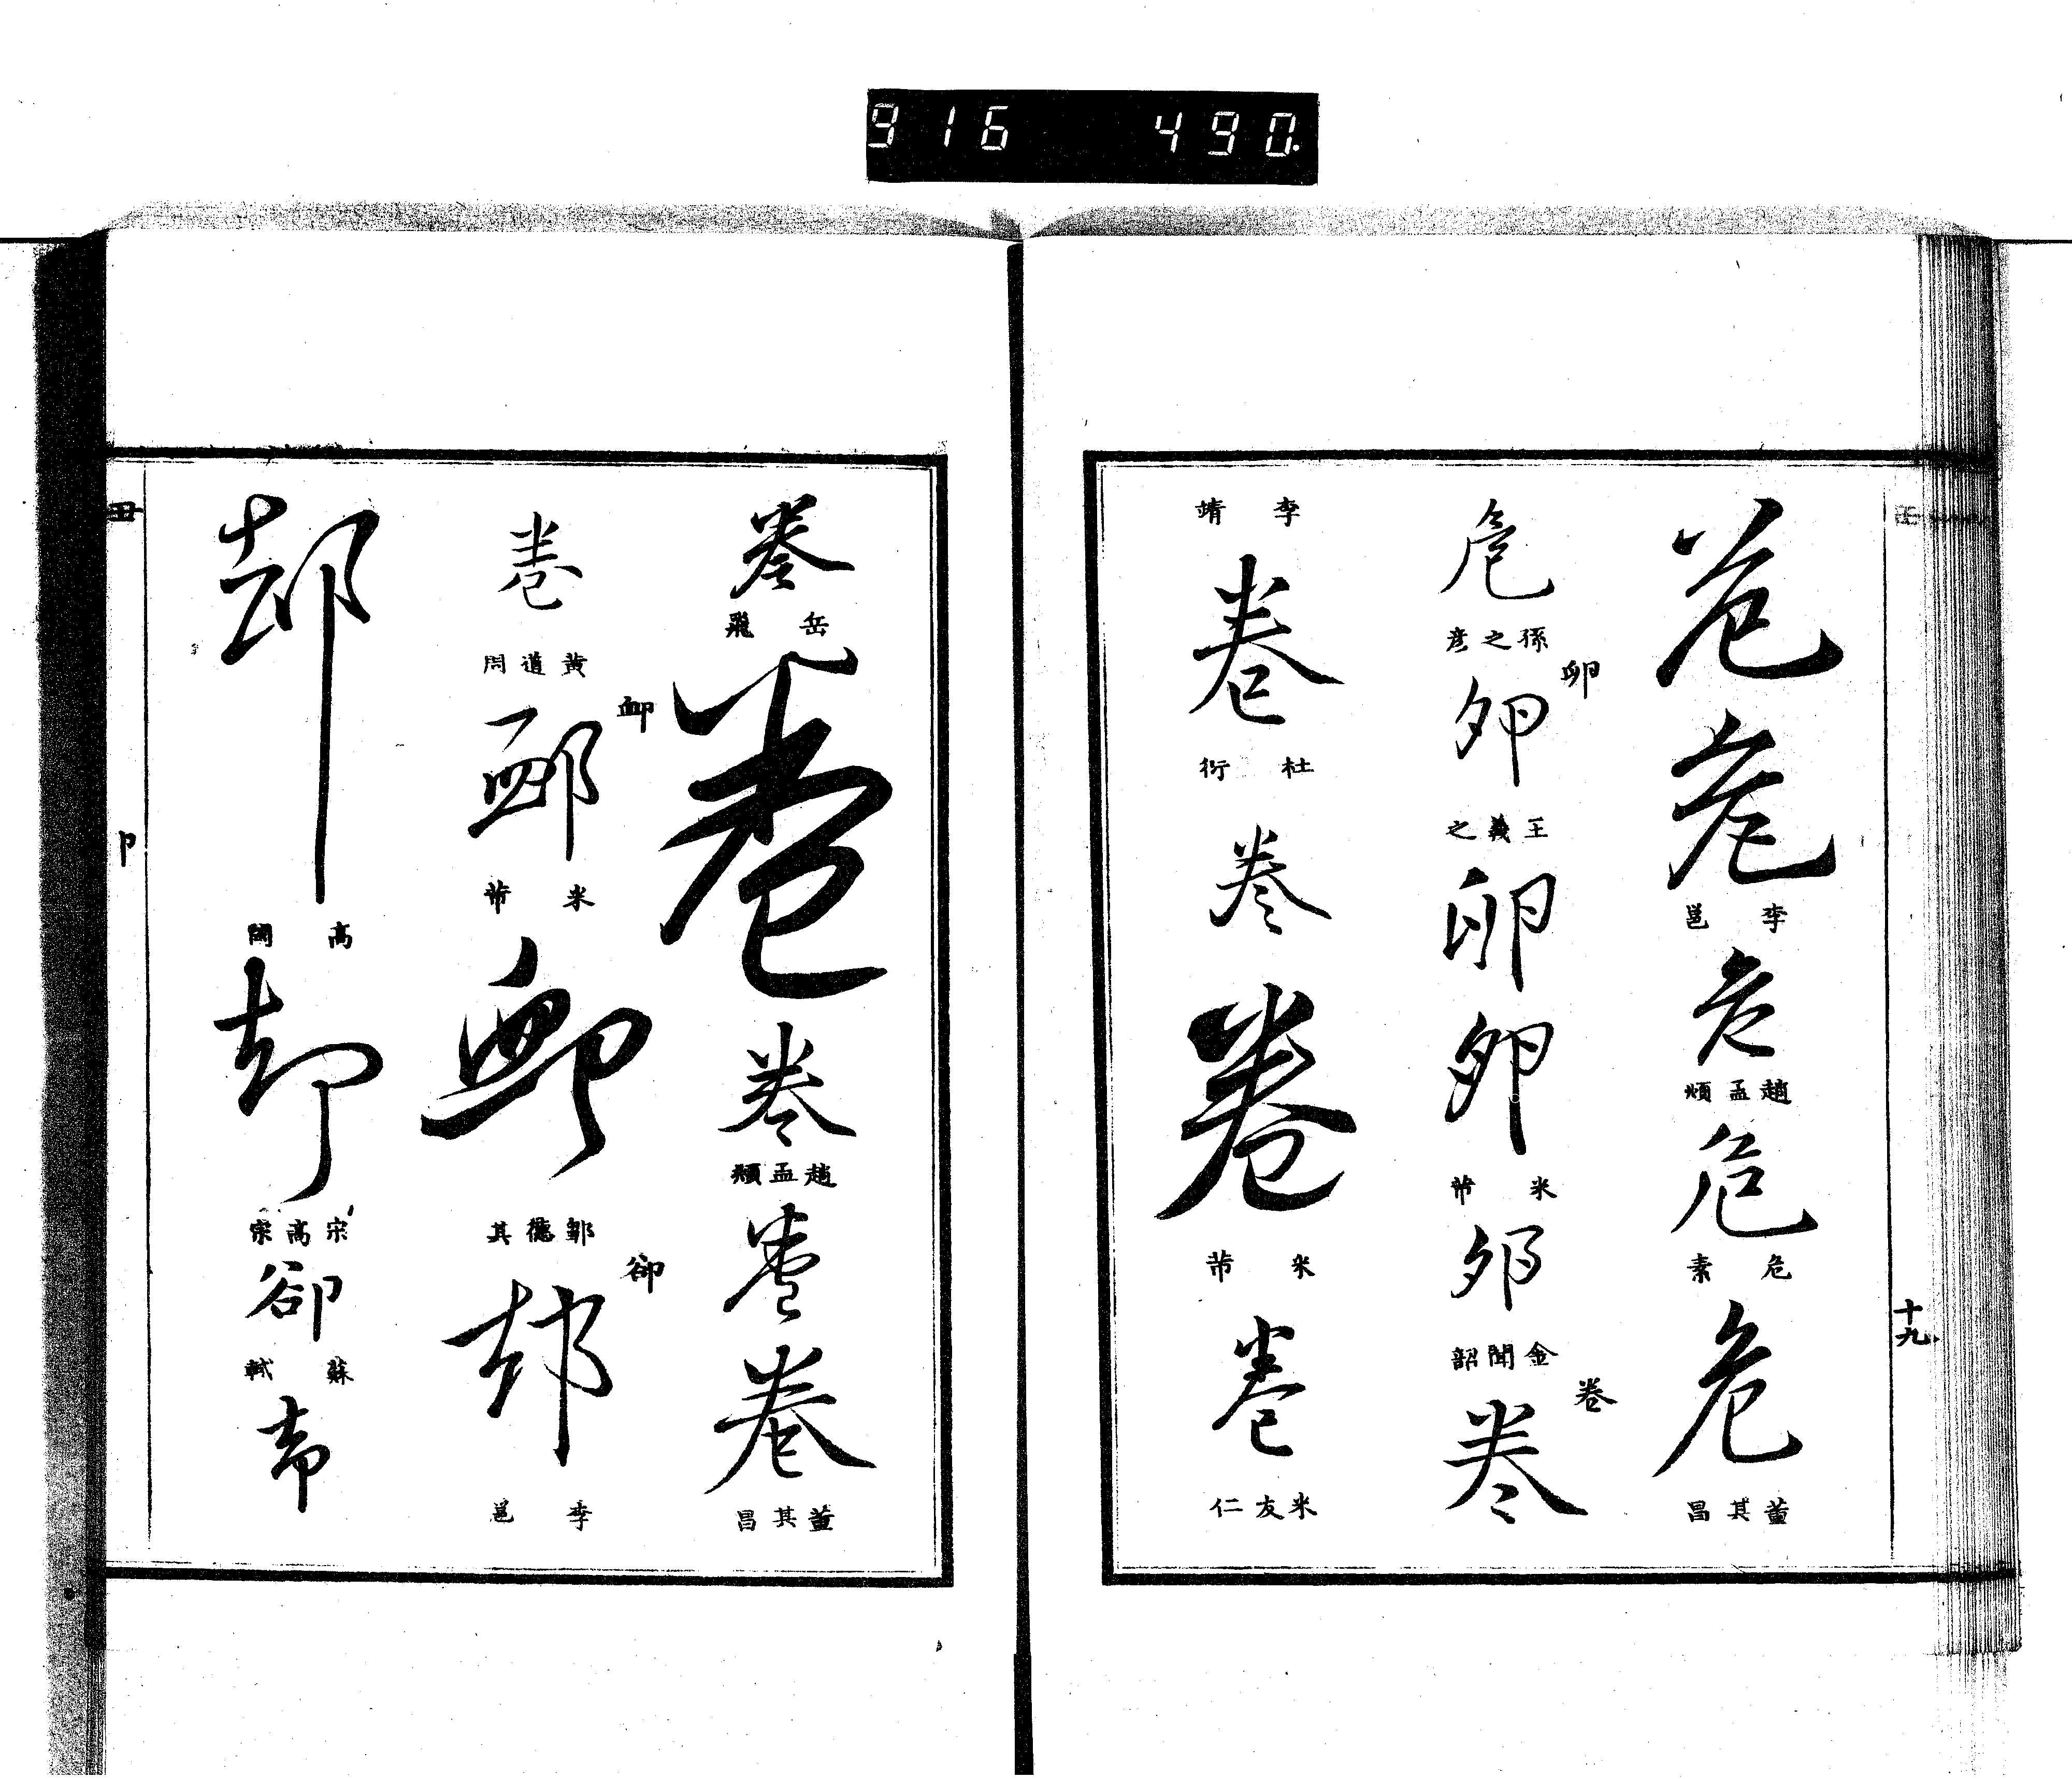 916 490.
十九
危
危
李邕
危
趙孟頫
危
危素
危
董其昌
危
孫之彥
卵
卵
王羲之
卵
卵
米芾
卵
金聞韶
卷
卷
李靖
卷
杜衍
卷
卷
米芾
卷
米友仁
卷
岳飛
卷
卷
趙孟頫
卷
卷
董其昌
卷
黃道周
卹
卹
米芾
卹
鄒德其
卻
却
李邕
却
高閌
却
宋高宗
卻
蘇軾
却
丑
卩